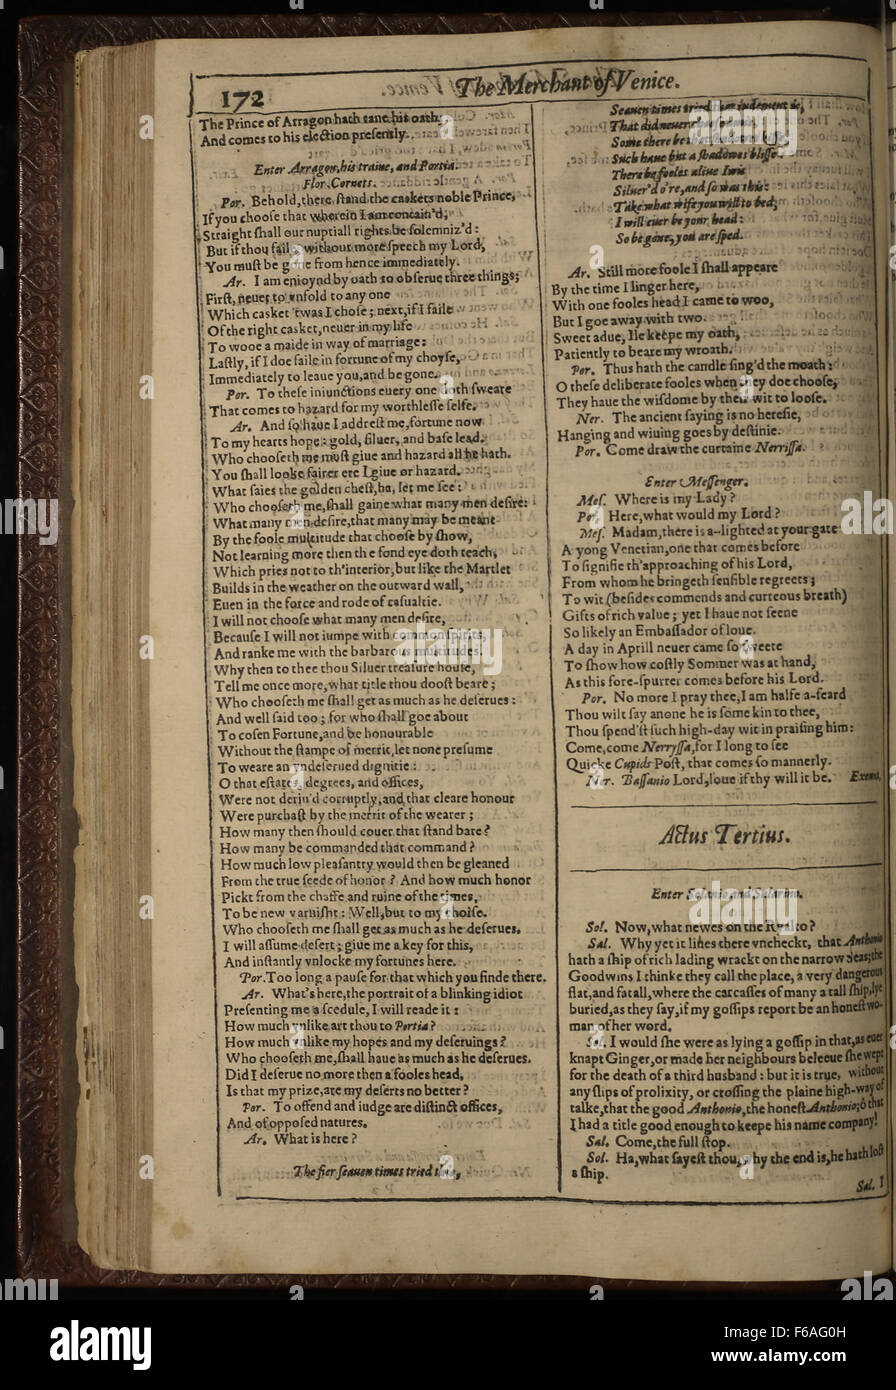 172
The Merchant of Venice.
The Prince of Arragon hath tane his oath,
And comes to his election presently.
Enter Arragon, his traine, and Portia.
Flor. Cornets.
Por. Behold, there ſtand the caskets noble Prince,
If you chooſe that wherein I am contain'd,
Straight ſhall our nuptiall rights be ſolemniz'd:
But if thou faile, without more ſpeech my Lord,
You muſt be gone from hence immediately.
Ar. I am enioynd by oath to obſerue three things;
Firſt, neuer to vnfold to any one
Which casket 'twas I choſe; next, if I faile
Of the right casket, neuer in my life
To wooe a maide in way of marriage:
Laſtly, if I doe faile in fortune of my choyſe,
Immediately to leaue you, and be gone.
Por. To theſe iniunctions euery one doth ſweare
That comes to hazard for my worthleſſe ſelfe.
Ar. And ſo haue I addreſt me, fortune now
To my hearts hope: gold, ſiluer, and baſe lead.
Who chooſeth me muſt giue and hazard all he hath.
You ſhall looke fairer ere I giue or hazard.
What ſaies the golden cheſt, ha, let me ſee:
Who chooſeth me, ſhall gaine what many men deſire:
What many men deſire, that many may be meant
By the foole multitude that chooſe by ſhow,
Not learning more then the fond eye doth teach,
Which pries not to th'interior, but like the Martlet
Builds in the weather on the outward wall,
Euen in the force and rode of caſualtie.
I will not chooſe what many men deſire,
Becauſe I will not iumpe with common ſpirits,
And ranke me with the barbarous multitudes.
Why then to thee thou Siluer treaſure houſe,
Tell me once more, what title thou dooſt beare;
Who chooſeth me ſhall get as much as he deſerues:
And well ſaid too; for who ſhall goe about
To coſen Fortune, and be honourable
Without the ſtampe of merrit, let none preſume
To weare an vndeſerued dignitie:
O that eſtates, degrees, and offices,
Were not deriu'd corruptly, and that cleare honour
Were purchaſt by the merrit of the wearer;
How many then ſhould couer that ſtand bare?
How many be commanded that command?
How much low pleaſantry would then be gleaned
From the true ſeede of honor? And how much honor
Pickt from the chaffe and ruine of the times,
To be new varniſht: Well, but to my choiſe.
Who chooſeth me ſhall get as much as he deſerues.
I will aſſume deſert; giue me a key for this,
And inſtantly vnlocke my fortunes here.
Por. Too long a pauſe for that which you finde there.
Ar. What's here, the portrait of a blinking idiot
Preſenting me a ſcedule, I will reade it:
How much vnlike art thou to Portia?
How much vnlike my hopes and my deſeruings?
Who chooſeth me, ſhall haue as much as he deſerues.
Did I deſerue no more then a fooles head,
Is that my prize, are my deſerts no better?
Por. To offend and iudge are diſtinct offices,
And of oppoſed natures.
Ar. What is here?
The fier ſeauen times tried this,
Seauen times tried that iudement is,
That did neuer chooſe amis,
Some there be that ſhadowes kiſſe,
Such haue but a ſhadowes bliſſe:
There be fooles aliue Iwis
Siluer'd o're, and ſo was this:
Take what wife you will to bed,
I will euer be your head:
So be gone, you are ſped.
Ar. Still more foole I ſhall appeare
By the time I linger here,
With one fooles head I came to woo,
But I goe away with two.
Sweet adue, Ile keepe my oath,
Patiently to beare my wroath.
Por. Thus hath the candle ſing'd the moath:
O theſe deliberate fooles when they doe chooſe,
They haue the wiſdome by their wit to looſe.
Ner. The ancient ſaying is no hereſie,
Hanging and wiuing goes by deſtinie.
Por. Come draw the curtaine Nerriſſa.
Enter Meſſenger.
Meſ. Where is my Lady?
Por. Here, what would my Lord?
Meſ. Madam, there is a-lighted at your gate
A yong Venetian, one that comes before
To ſignifie th'approaching of his Lord,
From whom he bringeth ſenſible regreets;
To wit (beſides commends and curteous breath)
Gifts of rich value; yet I haue not ſeene
So likely an Embaſſador of loue.
A day in Aprill neuer came ſo ſweete
To ſhow how coſtly Sommer was at hand,
As this fore-ſpurrer comes before his Lord.
Por. No more I pray thee, I am halfe a-feard
Thou wilt ſay anone he is ſome kin to thee,
Thou ſpend'ſt ſuch high-day wit in praiſing him:
Come, come Nerryſſa, for I long to ſee
Quicke Cupids Poſt, that comes ſo mannerly.
Ner. Baſſanio Lord, loue if thy will it be. Exeunt.
Actus Tertius.
Enter Solanio and Salarino.
Sol. Now, what newes on the Ryalto?
Sal. Why yet it liues there vncheckt, that Anthonio
hath a ſhip of rich lading wrackt on the narrow Seas; the
Goodwins I thinke they call the place, a very dangerous
flat, and fatall, where the carcaſſes of many a tall ſhip, lye
buried, as they ſay, if my goſſips report be an honeſt wo-
man of her word.
Sol. I would ſhe were as lying a goſſip in that, as euer
knapt Ginger, or made her neighbours beleeue ſhe wept
for the death of a third husband: but it is true, without
any ſlips of prolixity, or croſſing the plaine high-way of
talke, that the good Anthonio, the honeſt Anthonio; ô that
I had a title good enough to keepe his name company!
Sal. Come, the full ſtop.
Sol. Ha, what ſayeſt thou, why the end is, he hath loſt
a ſhip.
Sal. I
alamy
alamy
Image ID: F6AG0H
www.alamy.com